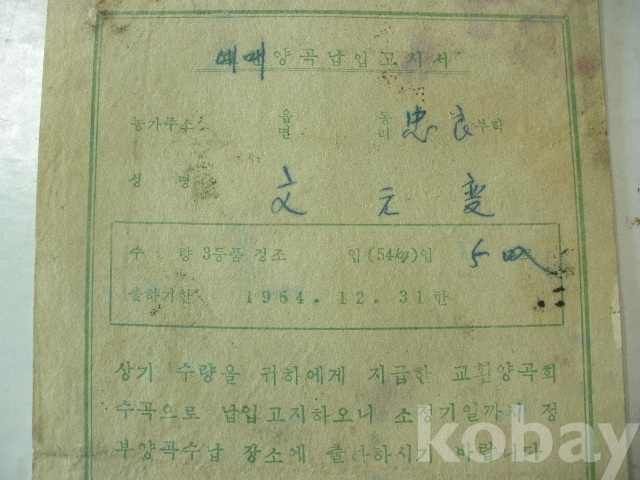 예매양곡납입고지서
농가주소 읍면 동리 忠良 부락
성 명 文 元 変
수 량 3등품 정조 입(54kg)입 5
출하기한 1964. 12. 31한
상기 수량을 귀하에게 지급한 교환양곡회
수곡으로 납입고지하오니 소정기일까지 정
부양곡수납 장소에 출하하시기 바랍니다
kobay